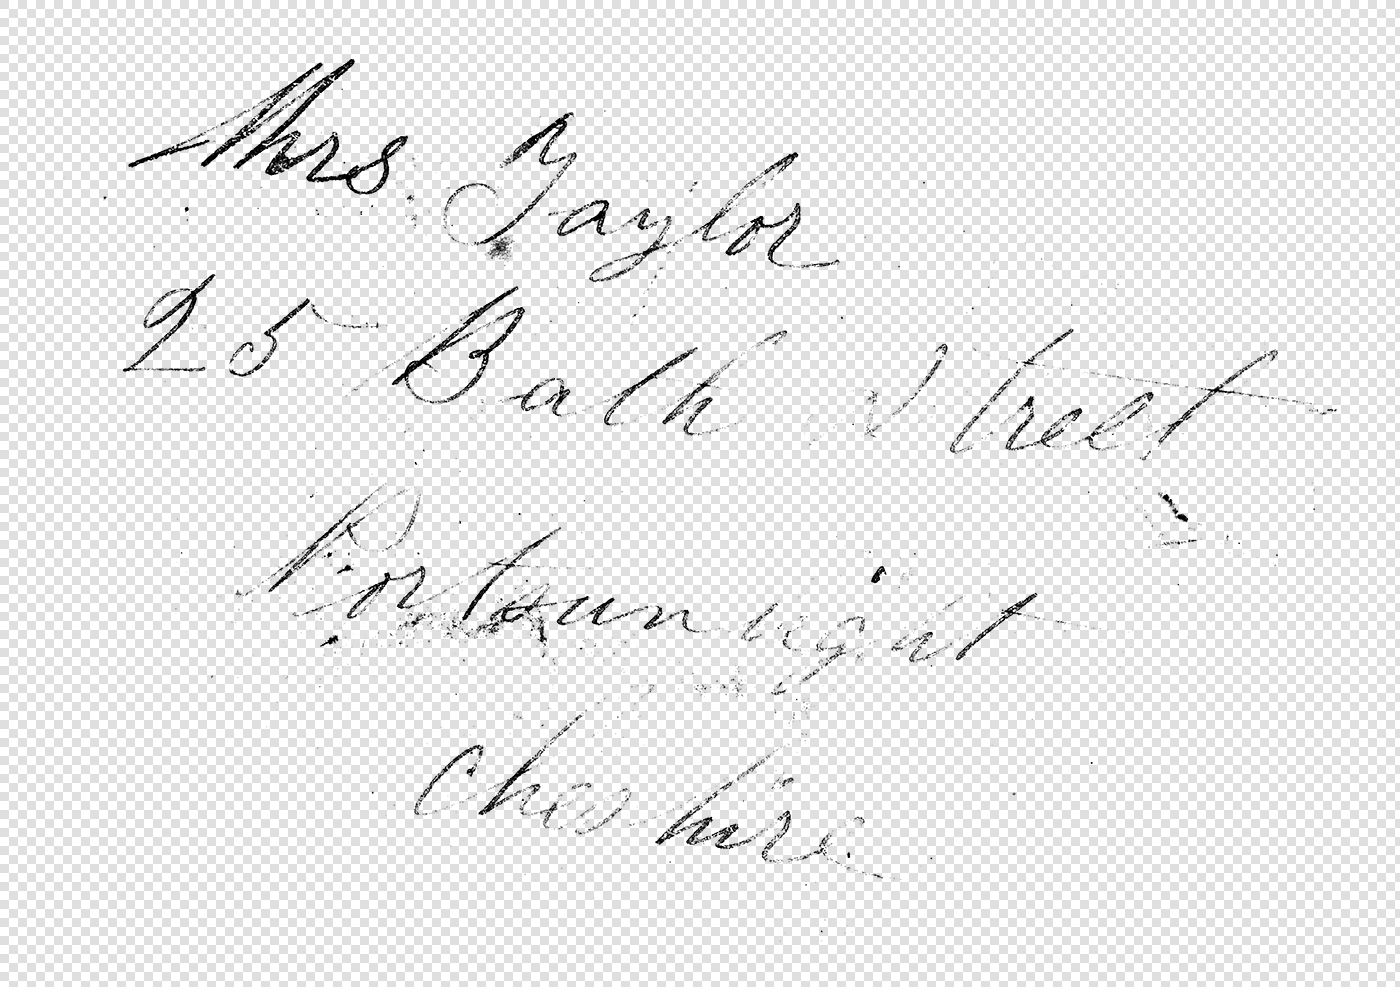 Mrs Taylor
25 Bath Street
Port sunnight
Cheshire